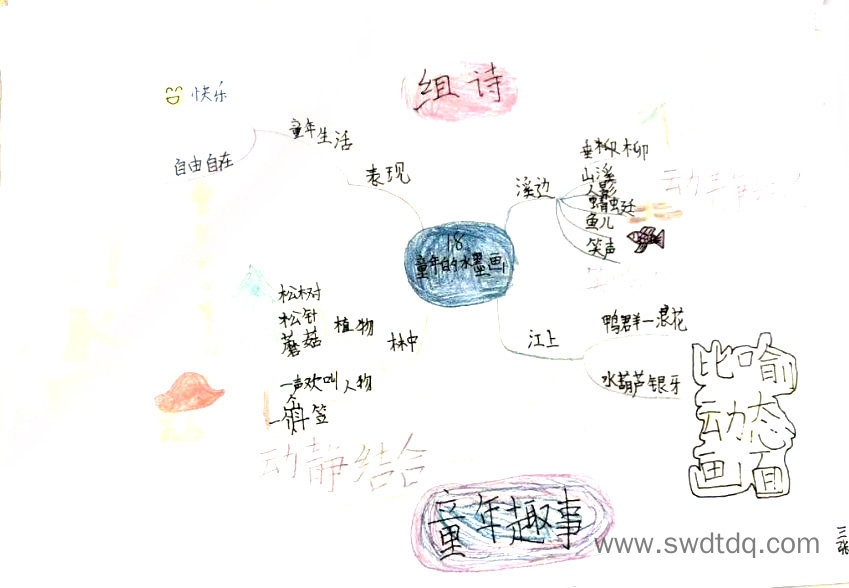 组诗
快乐
童年生活
自由自在
表现
溪边
垂柳柳
山溪
人影
蜻蜓
鱼儿
笑声
18
童年的水墨画
松树
松针
蘑菇
植物
林中
一声欢叫
人物
斗笠
动静结合
江上
鸭群一浪花
水葫芦银牙
比喻
动态
画面
童年趣事
www.swdtdq.com